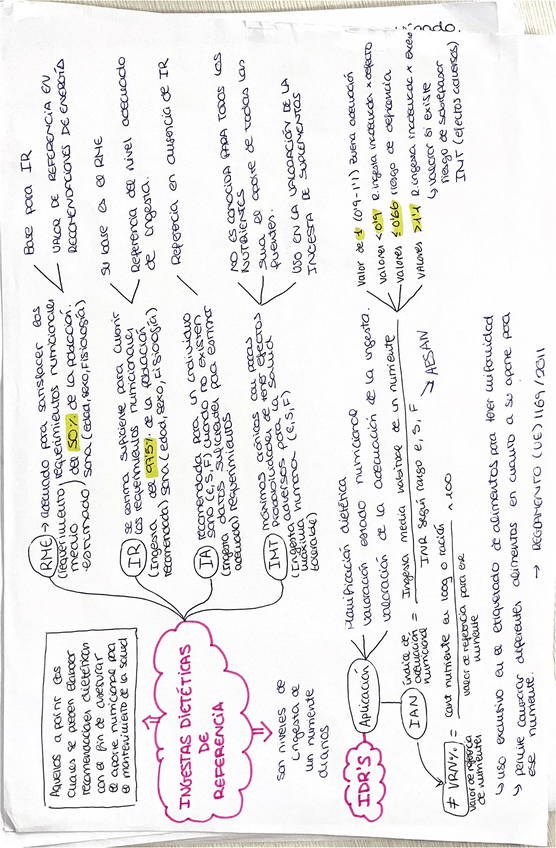 Aquellos a partir de los
cuales se pueden elaborar
recomendaciones dietéticas
con el fin de asegurar
el aporte nutricional para
el mantenimiento de la salud
INGESTAS DIETÉTICAS
DE
REFERENCIA
son niveles de
ingesta de
un nutriente
diarios
RME → adecuado para satisfacer los
(requerimiento medio estimado)
requerimientos nutricionales
del 50% de la población
sana (edad, sexo, fisiología)
Base para IR
VALOR DE REFERENCIA EN
RECOMENDACIONES DE ENERGÍA
IR
(Ingesta recomendada)
se estima suficiente para cubrir
los requerimientos nutricionales
de 97'5% de la población
sana (edad, sexo, fisiología)
su base es el RME
Referencia del nivel adecuado
de ingesta.
IA
(Ingesta adecuada)
recomendada para un individuo
sano (E, S, F) cuando no existen
datos suficientes para estimar
requerimientos
Referencia en ausencia de IR
IMT
(Ingesta máxima tolerable)
máximos crónicos con pocas
probabilidades de tener efectos
adversos para la salud
humana (E, S, F)
NO ES CONOCIDA PARA TODOS LOS
NUTRIENTES
suma el aporte de todas las
fuentes.
USO EN LA VALORACIÓN DE LA
INGESTA DE SUPLEMENTOS
IDR'S
Aplicación
Planificación dietética
valoración estado nutricional
valoración de la adecuación de la ingesta.
IAN
índice de
adecuación
nutricional
= Ingesta media habitual de un nutriente
INR según rango E, S, F
→ AESAN
valor de 1 (0'9-1'1) Buena adecuación
valores <0'9 R. ingesta inadecuada x defecto
valores ≤0'66 riesgo de deficiencia
valores >1'1 R. ingesta inadecuada x exceso
↳ valorar si existe
riesgo de sobrepasar
IMT (efectos adversos)
≠ VRN% = cant nutriente en 100g o ración
valor de referencia para ese
nutriente
x 100
valor de referencia
de nutrientes
↳ uso exclusivo en el etiquetado de alimentos para tener uniformidad
↳ permite comparar diferentes alimentos en cuanto a su aporte para
ese nutriente.
→ REGLAMENTO (UE) 1169/2011